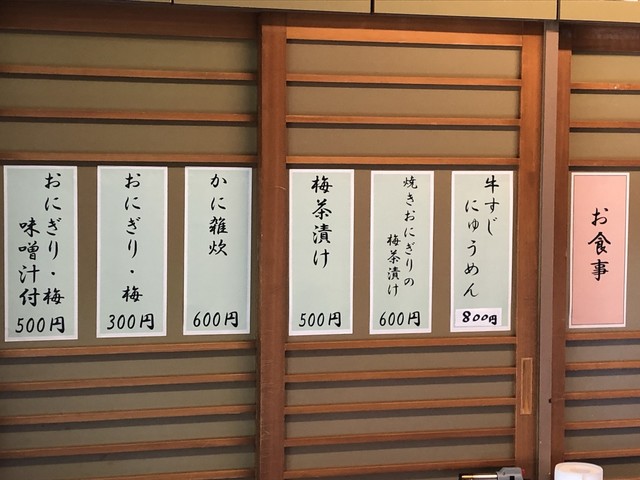 お食事
牛すじ
にゅうめん
800円
焼きおにぎりの
梅茶漬け
600円
梅茶漬け
500円
かに雑炊
600円
おにぎり・梅
300円
おにぎり・梅
味噌汁付
500円